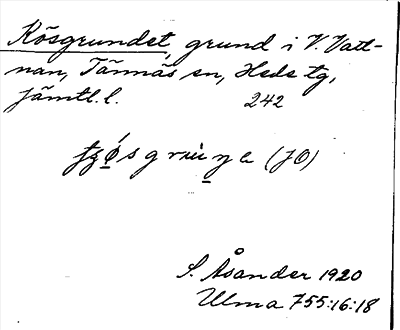 Kösgrundet, grund i V. Vatt-
nan, Tännäs sn, Heds tg,
Jämtl. l. 242
(JÖ)
S. Åsander 1920
Ulma 755:16:18